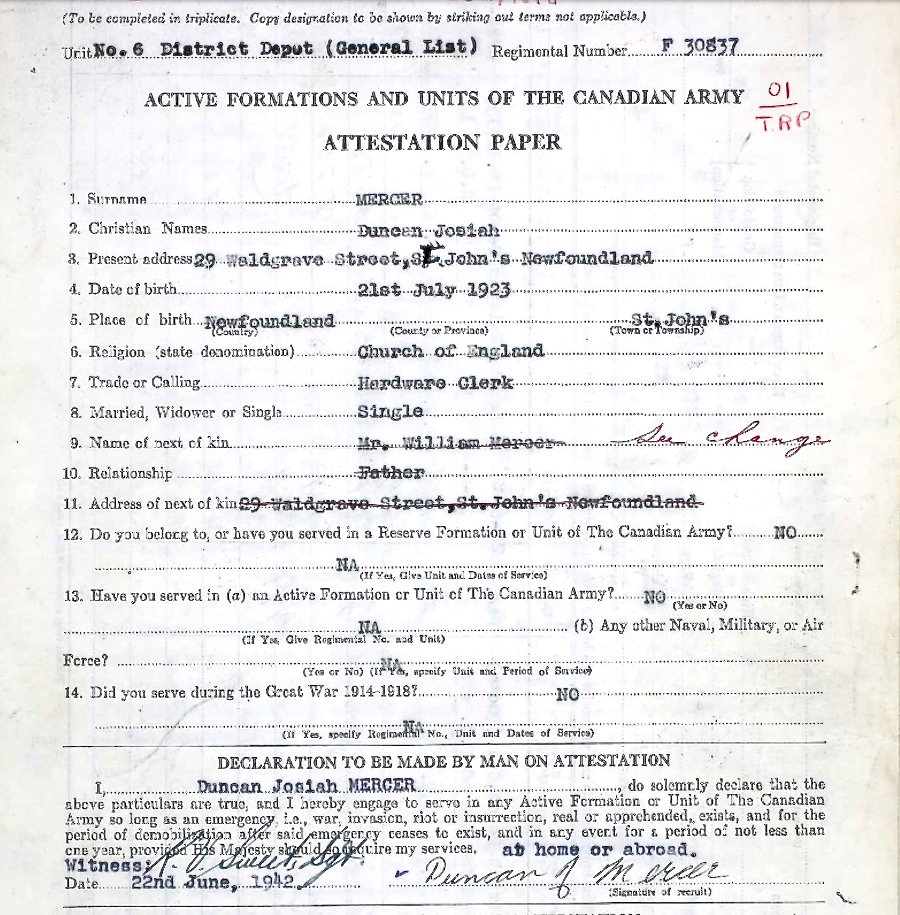 (To be completed in triplicate. Copy designation to be shown by striking out terms not applicable.)
Unit No. 6 District Depot (General List) Regimental Number F 30837
ACTIVE FORMATIONS AND UNITS OF THE CANADIAN ARMY 01
TRP
ATTESTATION PAPER
1. Surname MERCER
2. Christian Names Duncan Josiah
3. Present address 29 Waldgrave Street, St. John's Newfoundland
4. Date of birth 21st July 1923
5. Place of birth Newfoundland St. John's
(Country) (County or Province) (Town or Township)
6. Religion (state denomination) Church of England
7. Trade or Calling Hardware Clerk
8. Married, Widower or Single Single
9. Name of next of kin Mr. William Mercer See change
10. Relationship Father
11. Address of next of kin 29 Waldgrave Street, St. John's Newfoundland
12. Do you belong to, or have you served in a Reserve Formation or Unit of The Canadian Army? NO
NA
(If Yes, Give Unit and Dates of Service)
13. Have you served in (a) an Active Formation or Unit of The Canadian Army? NO
(Yes or No)
NA (b) Any other Naval, Military, or Air
(If Yes, Give Regimental No. and Unit)
Force? NA
(Yes or No) (If Yes, specify Unit and Period of Service)
14. Did you serve during the Great War 1914-1918? NO
NA
(If Yes, specify Regimental No., Unit and Dates of Service)
DECLARATION TO BE MADE BY MAN ON ATTESTATION
I, Duncan Josiah MERCER, do solemnly declare that the
above particulars are true, and I hereby engage to serve in any Active Formation or Unit of The Canadian
Army so long as an emergency, i.e., war, invasion, riot or insurrection, real or apprehended, exists, and for the
period of demobilization after said emergency ceases to exist, and in any event for a period of not less than
one year, provided His Majesty should so require my services, at home or abroad.
Witness: Sgt.
Date 22nd June, 1942 Duncan J Mercer
(Signature of recruit)